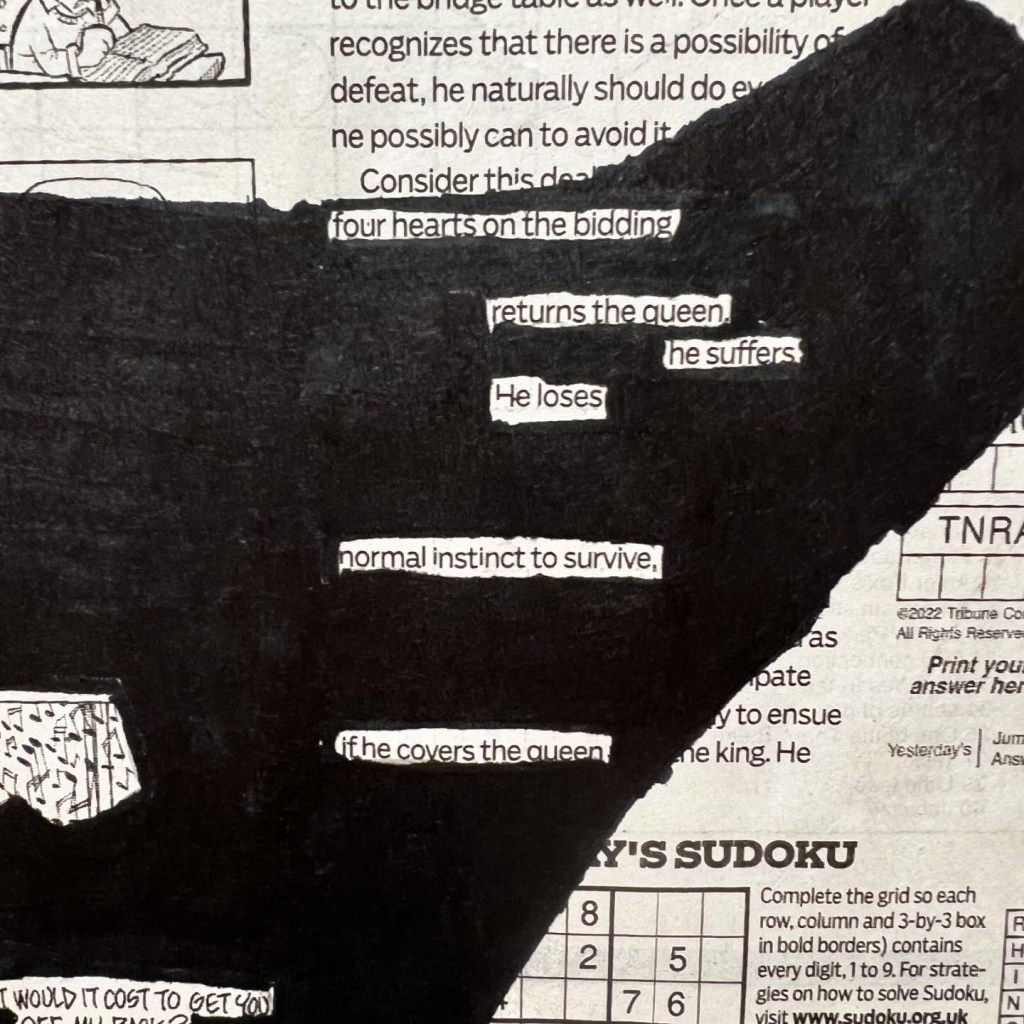 to the bridge table as well. Once a player
recognizes that there is a possibility of
defeat, he naturally should do
ne possibly can to avoid it
Consider this deal
four hearts on the bidding
returns the queen.
he suffers
He loses
normal instinct to survive,
if he covers the queen,
as
pate
y to ensue
he king. He
TNRA
©2022 Tribune Co
All Rights Reserve
Print your
answer her
Yesterday's
Jum
Answ
Y'S SUDOKU
8
2 5
7 6
Complete the grid so each
row, column and 3-by-3 box
in bold borders) contains
every digit, 1 to 9. For strate-
gies on how to solve Sudoku,
visit www.sudoku.org.uk
R
H
I
N
T WOULD IT COST TO GET YOU
OFF MY BACK?